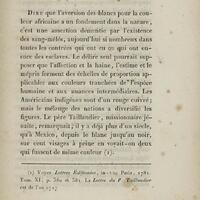 DIRE que l'aversion des blancs pour la couleur
africaine a un fondement dans la nature,
c'est une assertion démentie par l'existence
des sang-mêlés, aujourd'hui si nombreux dans
toutes les contrées qui ont eu ou qui ont encore
des esclaves. Le délire seul pourrait supposer
que l'affection et la haine, l'estime et le
mépris forment des échelles de proportion applicables
aux couleurs tranchées de l'espèce
humaine et aux nuances intermédiaires. Les
Américains indigènes sont d'un rouge cuivré;
mais le rouge des nations est différent du
nôtre. Le père Taillandier, missionnaire jésuite,
remarquait, il y a déjà plus d'un siècle,
qu'à Mexico, depuis le blanc jusqu'au noir,
sur cent visages à peine en voyait-on deux
qui fussent de même couleur (1).
(1) Voyez Lettres Edifiantes, in-12, Paris, 1781.
Tom. XI, p. 380 et 381. La Lettre du P. Taillandier
est de l'an 1707